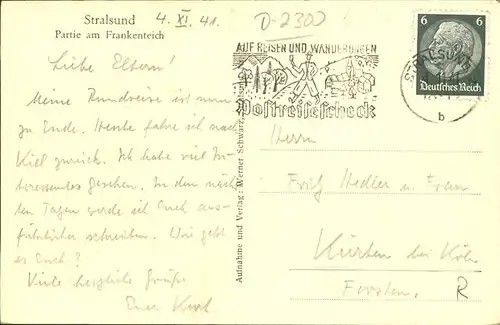 Stralsund 4. XI. 41. D-2300
Partie am Frankenteich
Liebe Eltern!
Meine Rundreise ist nun
zu Ende. Heute fahre ich nach
Kiel zurück. Ich habe viel In-
teressantes gesehen. In den näch-
sten Tagen werde ich Euch aus-
führlicher schreiben. Wie geht
es Euch?
Viele herzliche Grüße
Euer Kurt
Aufnahme und Verlag: Werner Schwarz,
AUF REISEN UND WANDERUNGEN
Postreisescheck
STRALSUND
b
6 6
Deutsches Reich
Herrn
Fritz Hedler u. Frau
Kürten bei Köln
Forsten. R